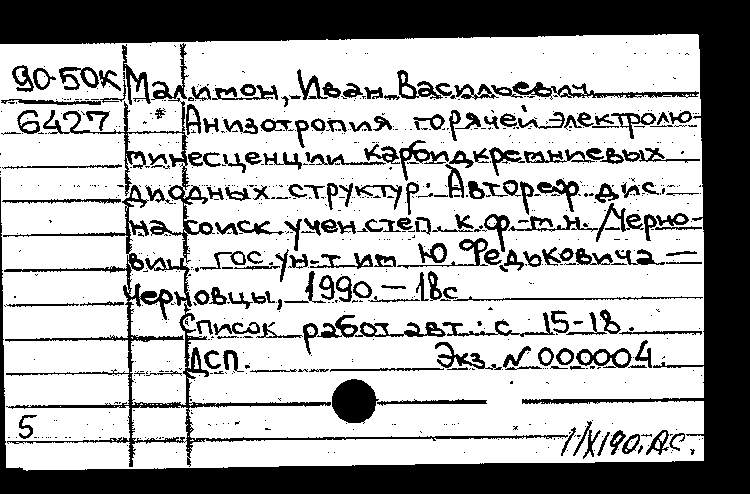 90-50К Малимон, Иван Васильевич.
6427 * Анизотропия горячей электролю-
минесценции карбидкремниевых
диодных структур: Автореф. дис.
на соиск. учен. степ. к. ф.-м. н. /Черно-
виц. гос. ун-т им Ю. Федьковича —
Черновцы, 1990. — 18с.
Список работ авт.: с. 15-18.
ДСП. Экз. N 000004.
5
1/X190. А.С.